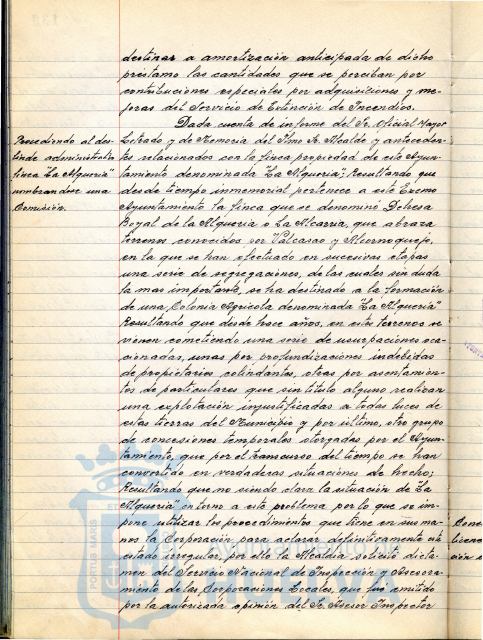 destinar a amortización anticipada de dicho
préstamo las cantidades que se perciban por
contribuciones especiales por adquisiciones y me-
joras del Servicio de Extinción de Incendios.
Dada cuenta de informe del Sr. Oficial Mayor
Letrado y de Memoria del Ilmo Sr. Alcalde y anteceden-
tes relacionados con la finca propiedad de este Ayun-
tamiento denominada "La Alquería"; Resultando que
desde tiempo inmemorial pertenece a este Excmo
Ayuntamiento la finca que se denominó Dehesa
Boyal de la Alquería o La Alcarria, que abraza
terrenos conocidos por Valcasao y Alcornoquejo,
en la que se han efectuado en sucesivas etapas
una serie de segregaciones, de las cuales sin duda
la mas importante, se ha destinado a la formación
de una Colonia Agrícola denominada "La Alquería"
Resultando que desde hace años, en estos terrenos se
vienen cometiendo una serie de usurpaciones oca-
cionadas, unas por profundizaciones indebidas
de propietarios colindantes, otras por asentamien-
tos de particulares que sin titulo alguno realizan
una explotación injustificadas a todas luces de
estas tierras del Municipio y por último, otro grupo
de concesiones temporales otorgadas por el Ayun-
tamiento, que por el transcurso del tiempo se han
convertido en verdaderas situaciones de hecho;
Resultando que no siendo clara la situación de "La
Alquería" entorno a este problema por lo que se im-
pone utilizar los procedimientos que tiene en sus ma-
nos la Corporación para aclarar definitivamente este
estado irregular, por ello la Alcaldia solicitó dicta-
men del Servicio Nacional de Inspección y Asesora-
miento de las Corporaciones Locales, que fué emitido
por la autorizada opinión del Sr. Asesor Inspector
Procediendo al des-
linde administrativo
finca "La Alquería"
nombrandose una
Comisión.
PORTUS MARIS